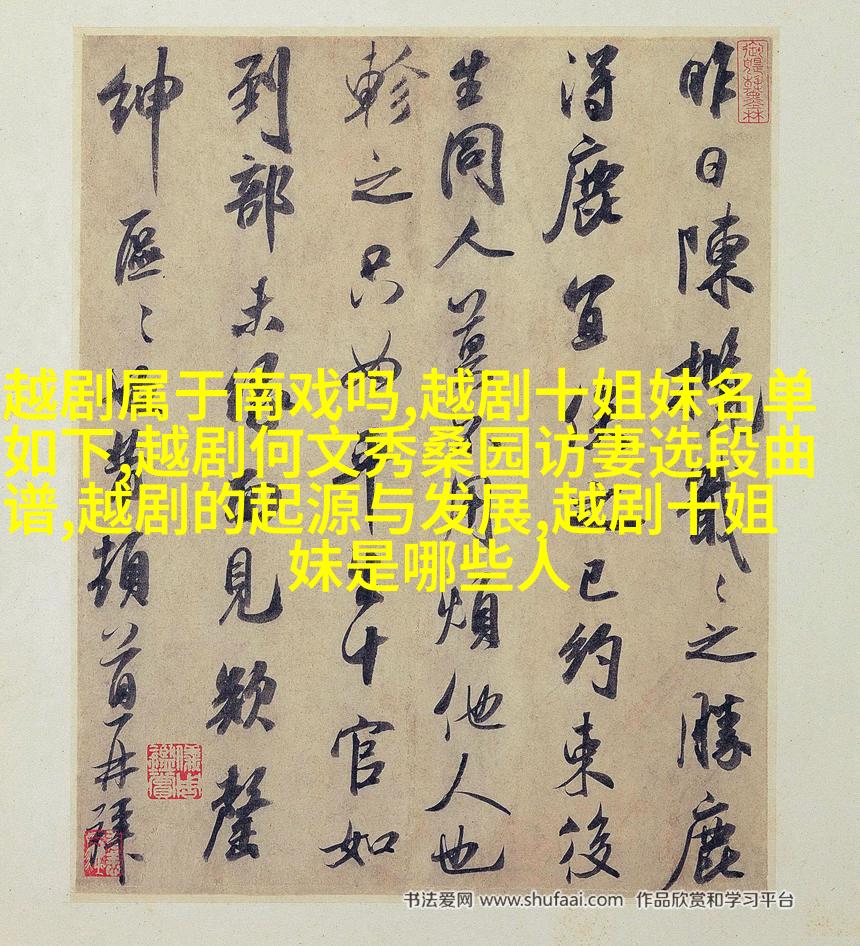 昨日陳之勝鹿
得鹿宜已約束後
生同人莫煩他人也
軫之只十官如
到部未見欵
紳區〻頓首再拜
越剧属于南戏吗,越剧十姐妹名单
如下,越剧何文秀桑园访妻选段曲
谱,越剧的起源与发展,越剧十姐
妹是哪些人
书法爱网 www.shufaai.com 作品欣赏和学习平台